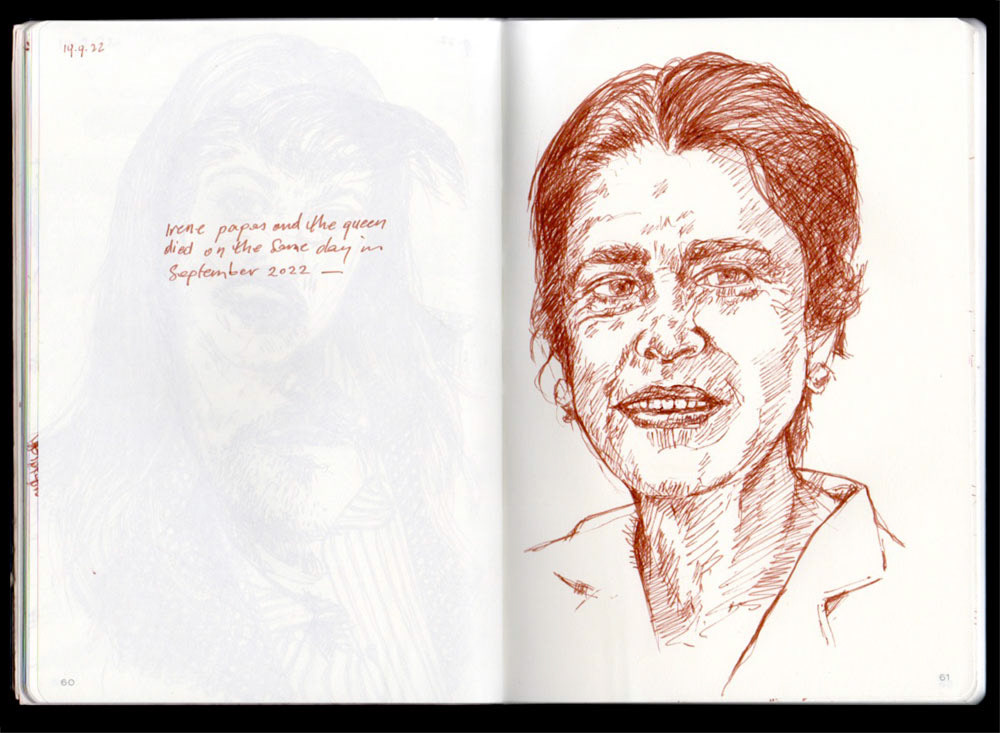 19.9.22
Irene papas and the queen
died on the same day in
September 2022 —
60
61